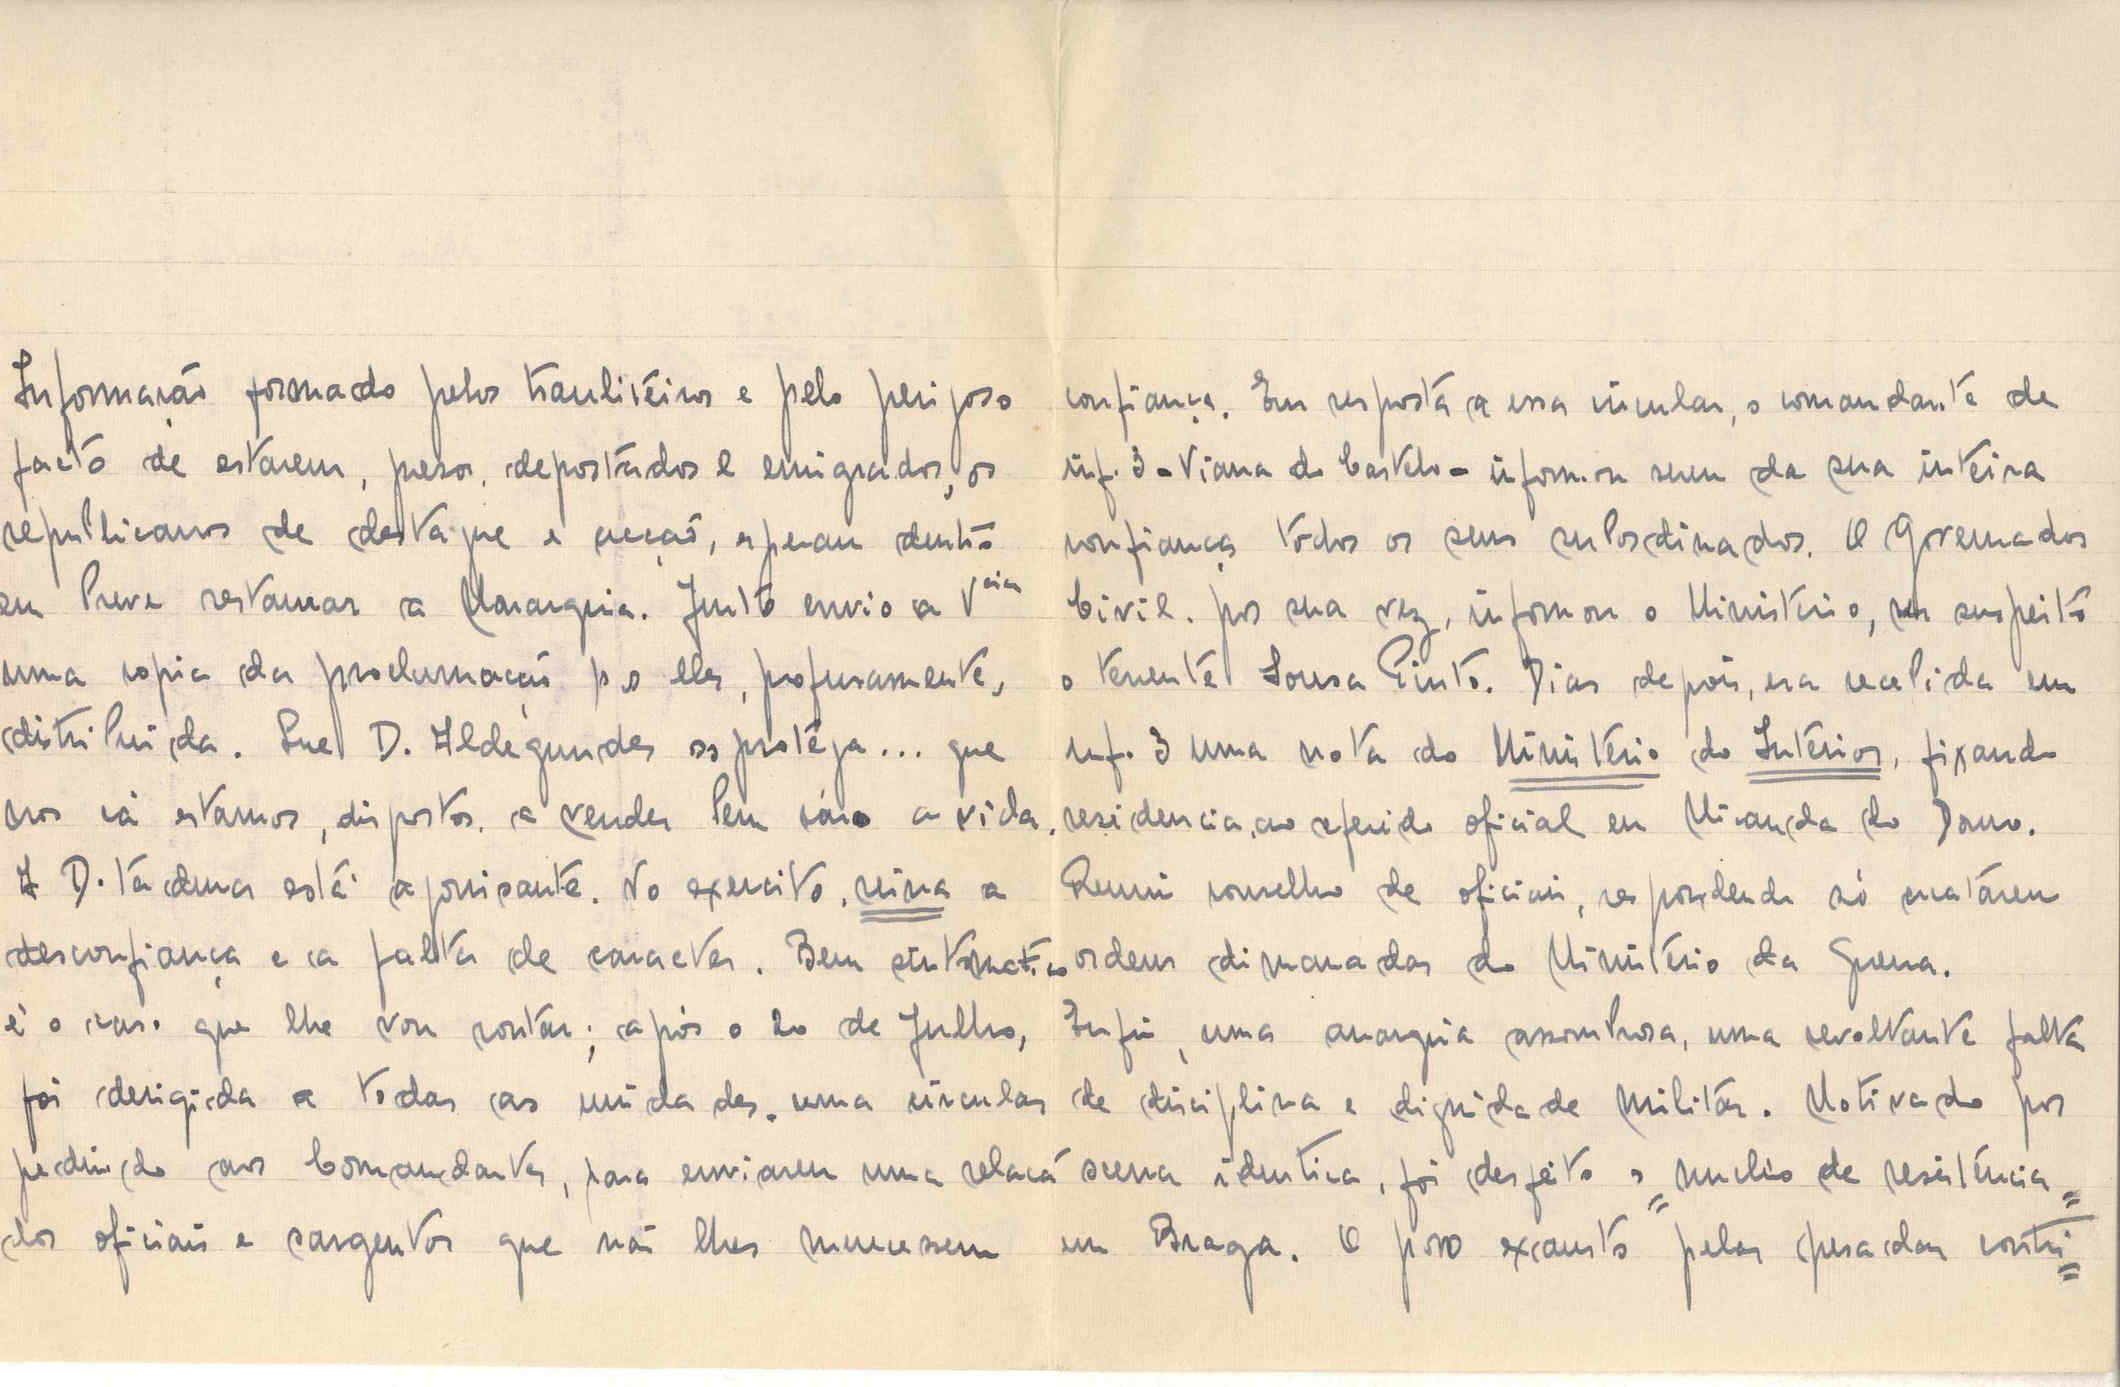 Informação formado pelos trauliteiros e pelo perigoso
facto de estarem, presos, deportados e emigrados, os
republicanos de destaque e acção, esperam dentro
em breve restaurar a Monarquia. Junto envio a V
uma copia da proclamação por elles, profusamente,
distribuida. Que D. Aldegundes os proteja... que
nos cá estamos, dispostos, a vender bem caro a vida.
A Ditadura está agonisante. No exercito, reina a
desconfiança e a falta de caracter. Bem sintomatico
é o caso que lhe vou contar; após o 20 de Julho,
foi derigida a todas as unidades, uma circular
pedindo aos Comandantes, para enviarem uma relacã
dos oficiais e sargentos que não lhes merecessem
confiança. Em resposta a essa circular, o comandante de
inf. 3 - Viana do Castelo - informou serem da sua inteira
confiança todos os seus subordinados. O Governador
Civil. por sua vez, informou o Ministerio, ser suspeito
o tenente Sousa Pinto. Dias depois, era recebida em
inf. 3 uma nota do Ministério do Intérior, fixando
residencia, ao referido oficial em Miranda do Douro.
Reuniu conselho de oficiais, respondendo só acatárem
ordens dimanadas do Ministério da Guerra.
Enfim, uma anarquia assombrosa, uma revoltante falta
de disciplina e dignidade militar. Motivado por
scena identica, foi desfeito o nucleo de resistencia
em Braga. O povo exausto pelas pesadas contri=